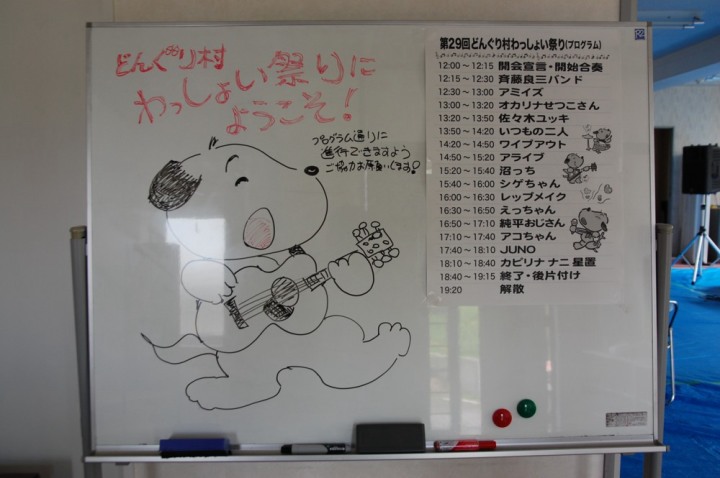 どんぐり村
わっしょい祭りに
ようこそ!
プログラム通りに
進行できますよう
ご協力お願いします!
第29回どんぐり村わっしょい祭り(プログラム)
12:00～12:15 開会宣言・開始合奏
12:15～12:30 斉藤良三バンド
12:30～13:00 アミイズ
13:00～13:20 オカリナせつこさん
13:20～13:50 佐々木ユッキ
13:50～14:20 いつもの二人
14:20～14:50 ワイプアウト
14:50～15:20 アライブ
15:20～15:40 沼っち
15:40～16:00 シゲちゃん
16:00～16:30 レップメイク
16:30～16:50 えっちゃん
16:50～17:10 純平おじさん
17:10～17:40 アコちゃん
17:40～18:10 JUNO
18:10～18:40 カピリナ ナニ 星置
18:40～19:15 終了・後片付け
19:20 解散